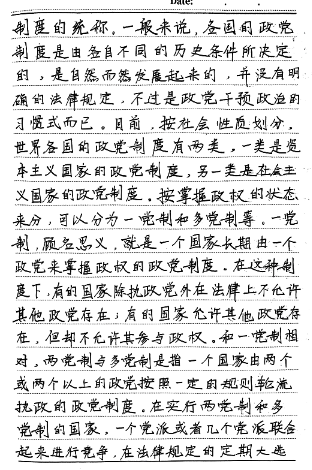 Date:
制度的统称。一般来说，各国的政党
制度是由各自不同的历史条件所决定
的，是自然而然发展起来的，并没有明
确的法律规定，不过是政党干预政治的
习惯式而已。目前，按社会性质划分，
世界各国的政党制度有两类，一类是资
本主义国家的政党制度，另一类是社会主
义国家的政党制度。按掌握政权的状态
来分，可以分为一党制和多党制等。一党
制，顾名思义，就是一个国家长期由一个
政党来掌握政权的政党制度。在这种制
度下，有的国家除执政党外在法律上不允许
其他政党存在；有的国家允许其他政党存
在，但却不允许其参与政权。和一党制相
对，两党制与多党制是指一个国家由两个
或两个以上的政党按照一定的规则轮流
执政的政党制度。在实行两党制和多
党制的国家，一个党派或者几个党派联合
起来进行竞争，在法律规定的定期大选